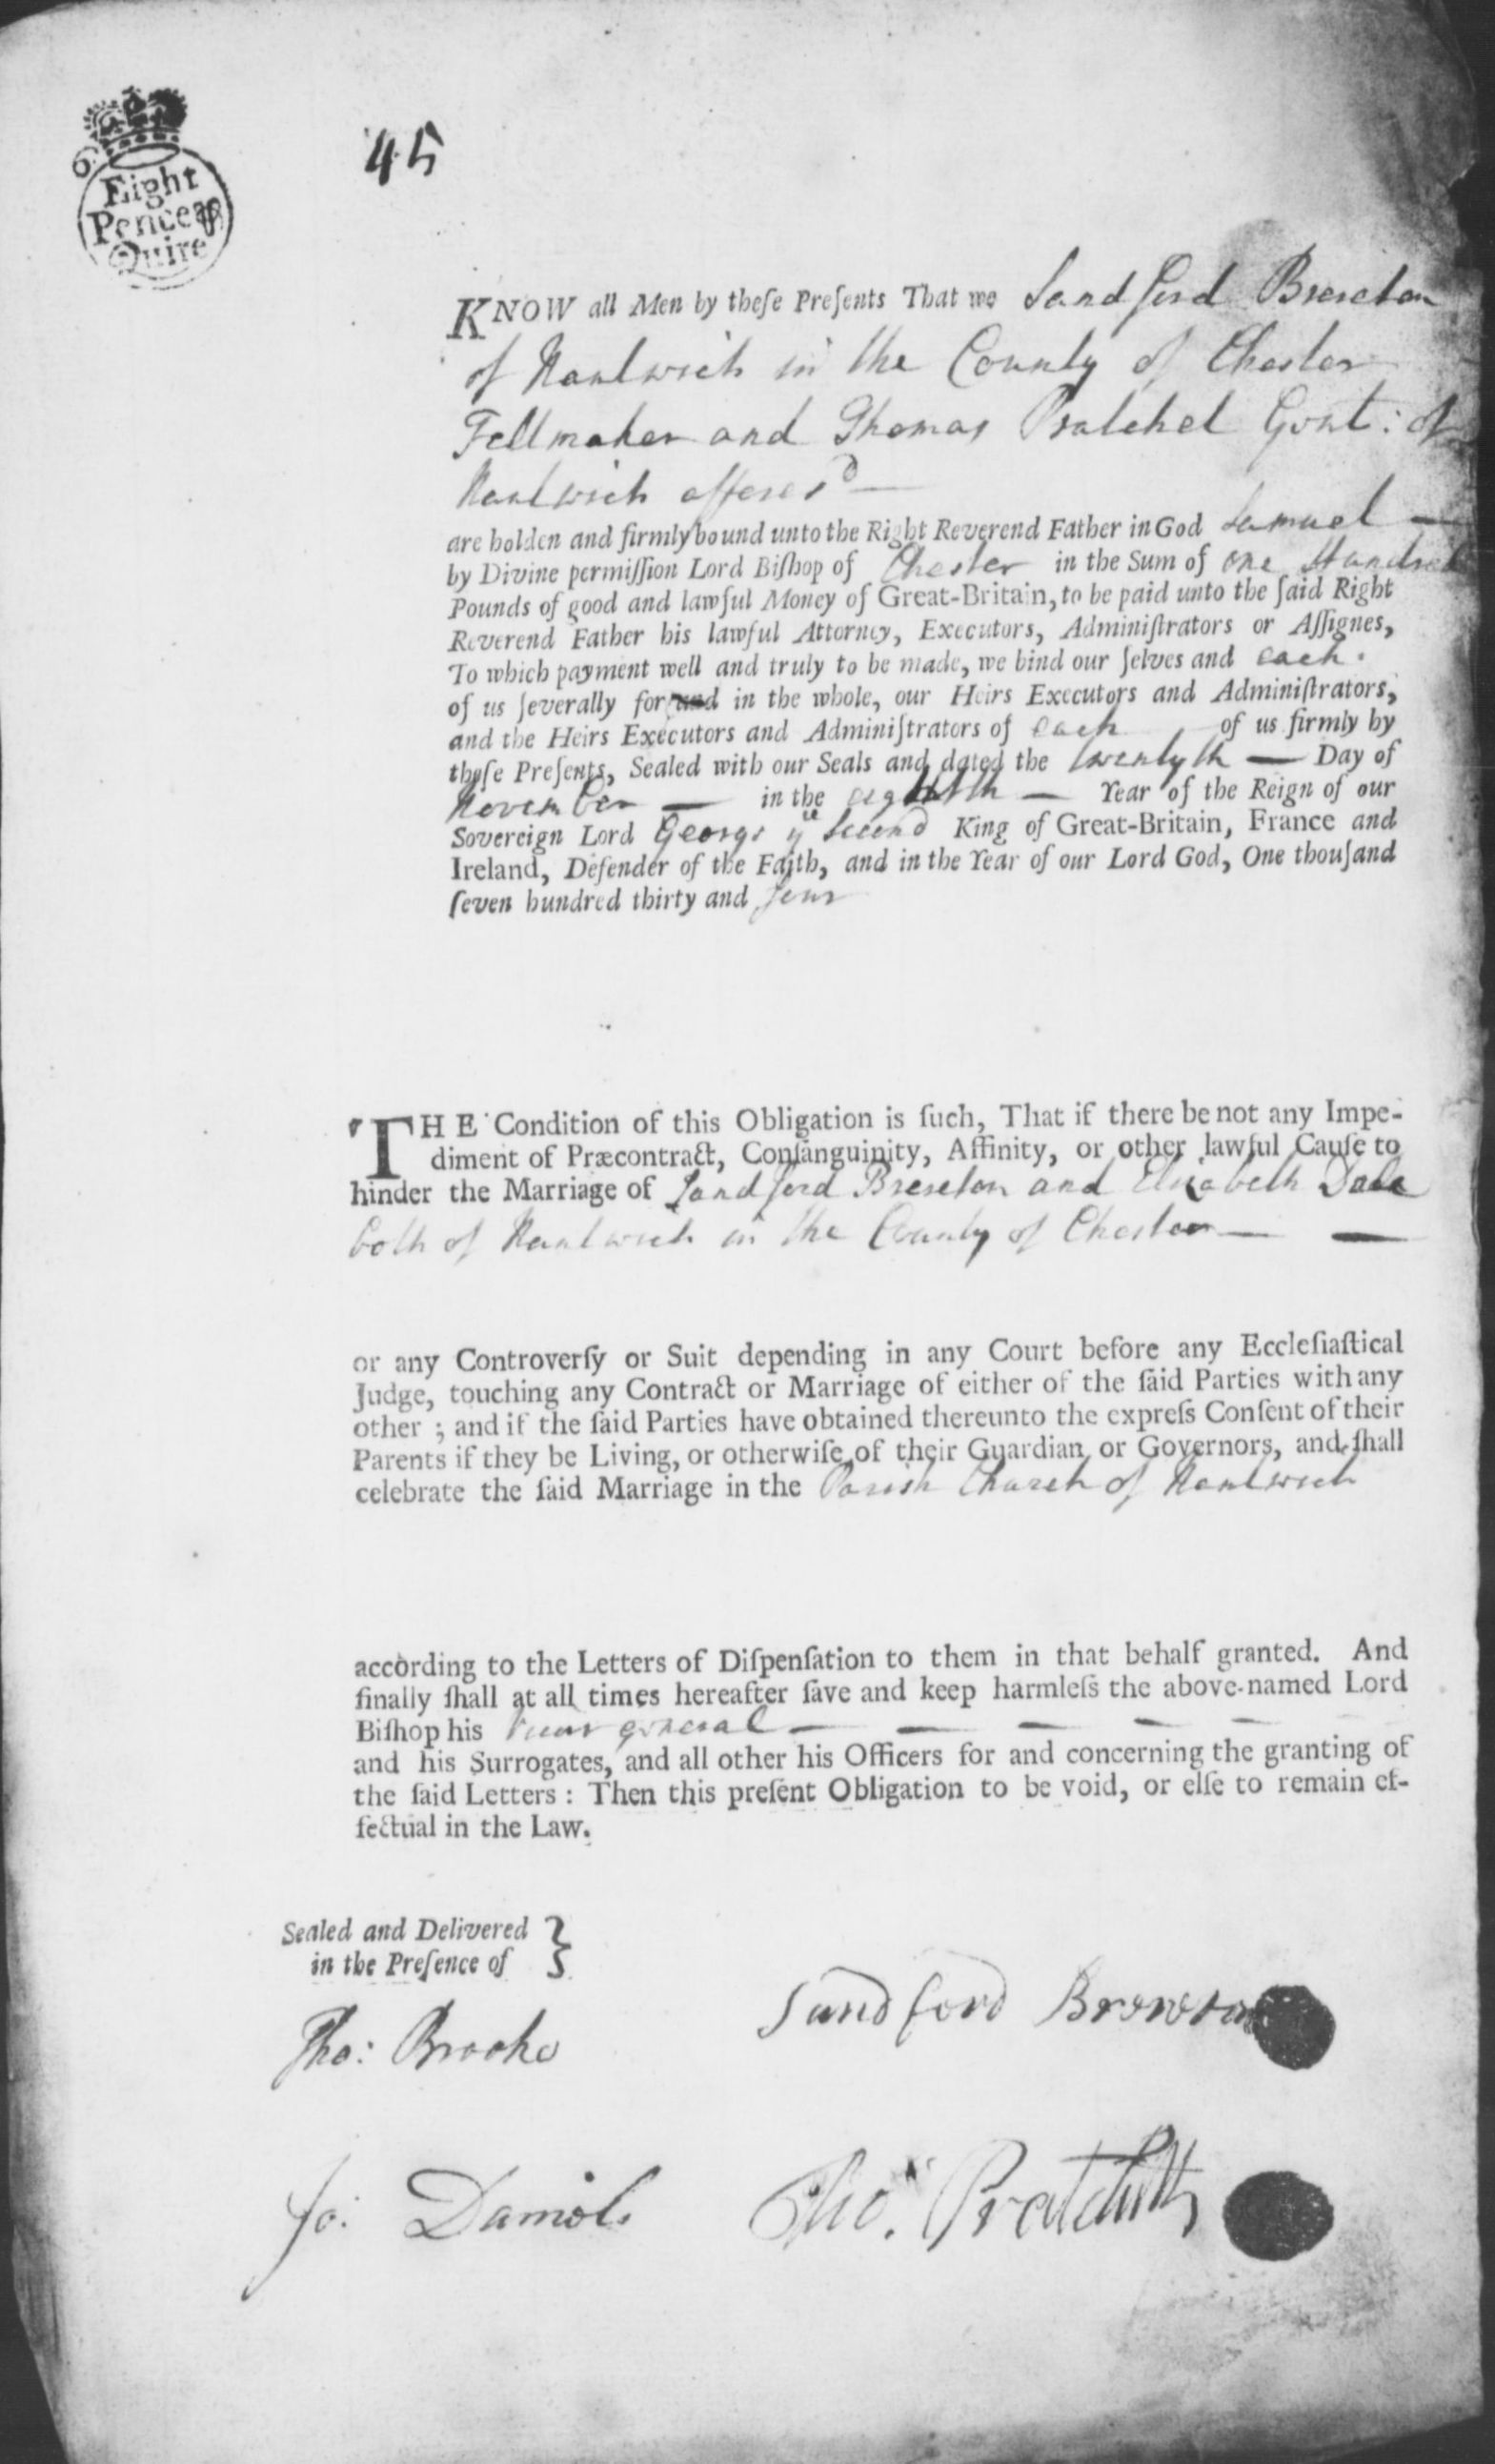 Eight
Pence ⅌
Quire
45
KNOW all Men by theſe Preſents That we Sandford Brereton
of Nantwich in the County of Chester
Feltmaker and Thomas Pratchet Gent: of
Nantwich afferesd
are holden and firmly bound unto the Right Reverend Father in God Samuel
by Divine permiſſion Lord Biſhop of Chester in the Sum of one Hundred
Pounds of good and lawful Money of Great-Britain, to be paid unto the ſaid Right
Reverend Father his lawful Attorney, Executors, Adminiſtrators or Aſſignes,
To which payment well and truly to be made, we bind our ſelves and each
of us ſeverally for and in the whole, our Heirs Executors and Adminiſtrators,
and the Heirs Executors and Adminiſtrators of each of us firmly by
theſe Preſents, Sealed with our Seals and dated the twentyth Day of
November in the eighth Year of the Reign of our
Sovereign Lord George ye Second King of Great-Britain, France and
Ireland, Defender of the Faith, and in the Year of our Lord God, One thouſand
ſeven hundred thirty and four
THE Condition of this Obligation is ſuch, That if there be not any Impe-
diment of Præcontract, Conſanguinity, Affinity, or other lawful Cauſe to
hinder the Marriage of Sandford Brereton and Elizabeth Dale
both of Nantwich in the County of Chester
or any Controverſy or Suit depending in any Court before any Eccleſiaſtical
Judge, touching any Contract or Marriage of either of the ſaid Parties with any
other ; and if the ſaid Parties have obtained thereunto the expreſs Conſent of their
Parents if they be Living, or otherwiſe of their Guardian or Governors, and ſhall
celebrate the ſaid Marriage in the Parish Church of Nantwich
according to the Letters of Diſpenſation to them in that behalf granted. And
finally ſhall at all times hereafter ſave and keep harmleſs the above-named Lord
Biſhop his vicar general
and his Surrogates, and all other his Officers for and concerning the granting of
the ſaid Letters : Then this preſent Obligation to be void, or elſe to remain ef-
fectual in the Law.
Sealed and Delivered }
in the Preſence of
Sandford Brereton
Tho: Brooke
Jo: Daniels
Tho: Pratchett